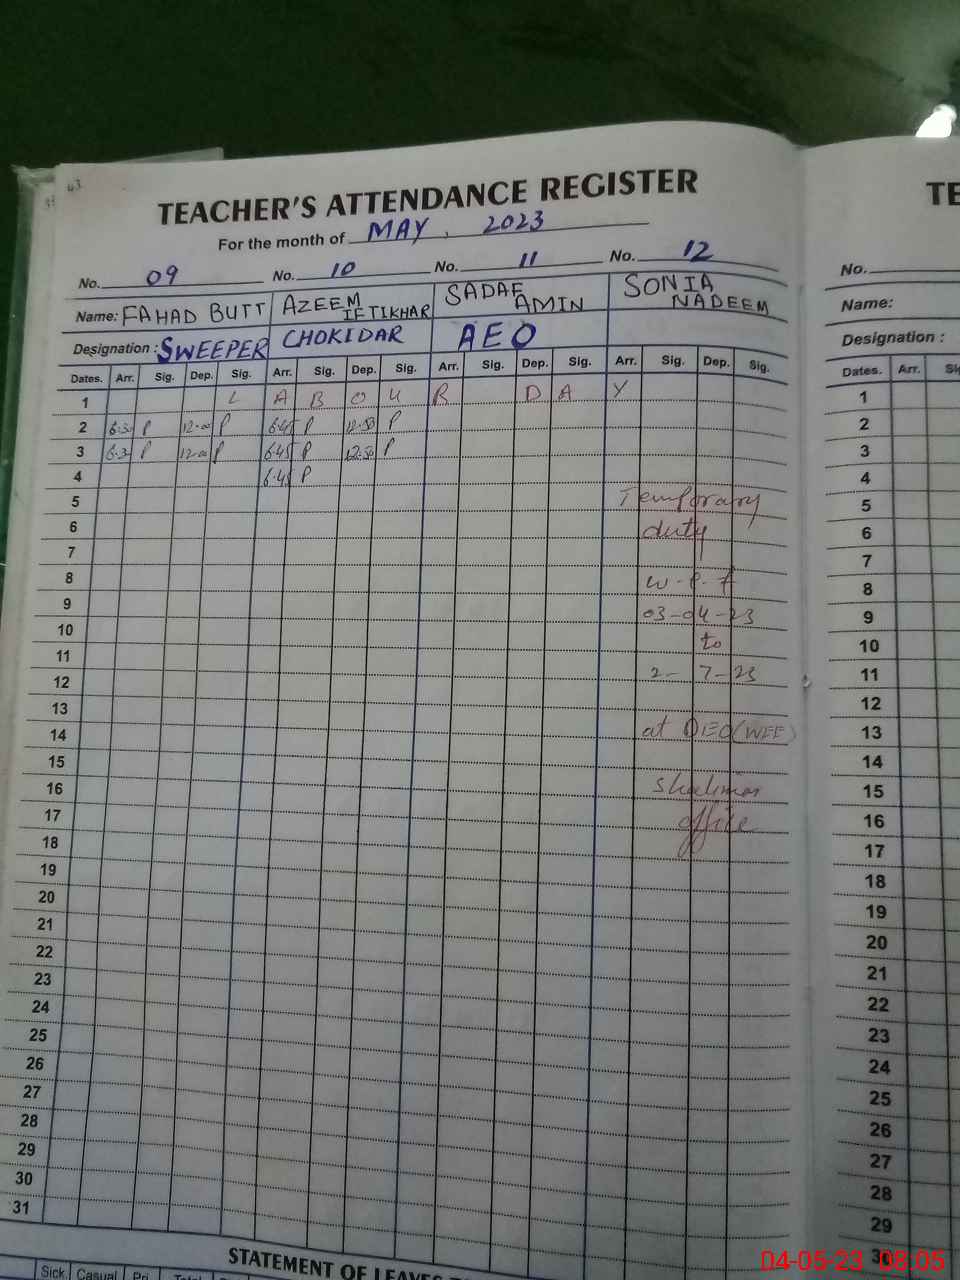 43
TEACHER'S ATTENDANCE REGISTER
TE
For the month of MAY, 2023
No. 09 No. 10 No. 11 No. 12
No.
Name: FAHAD BUTT AZEEM IFTIKHAR SADAF AMIN SONIA NADEEM
Name:
Designation : SWEEPER CHOKIDAR AEO
Designation :
Dates. Arr. Sig. Dep. Sig. Arr. Sig. Dep. Sig. Arr. Sig. Dep. Sig. Arr. Sig. Dep. Sig.
Dates. Arr.
1 L A B O U R D A Y
2 6.30 P 12.00 P 6.45 P 12.50 P
3 6.3 P 12.00 P 6.45 P 12.50 P
4 6.45 P
5 Temporary
6 duty
7
8 w.e.f
9 03-04-23
10 to
11 2-7-23
12
13
14 at DEO(WEE)
15
16 Shalimar
17 office
18
19
20
21
22
23
24
25
26
27
28
29
30
31
1
2
3
4
5
6
7
8
9
10
11
12
13
14
15
16
17
18
19
20
21
22
23
24
25
26
27
28
29
30
STATEMENT OF LEAVES
Sick Casual Pri. Total
04-05-23 08:05